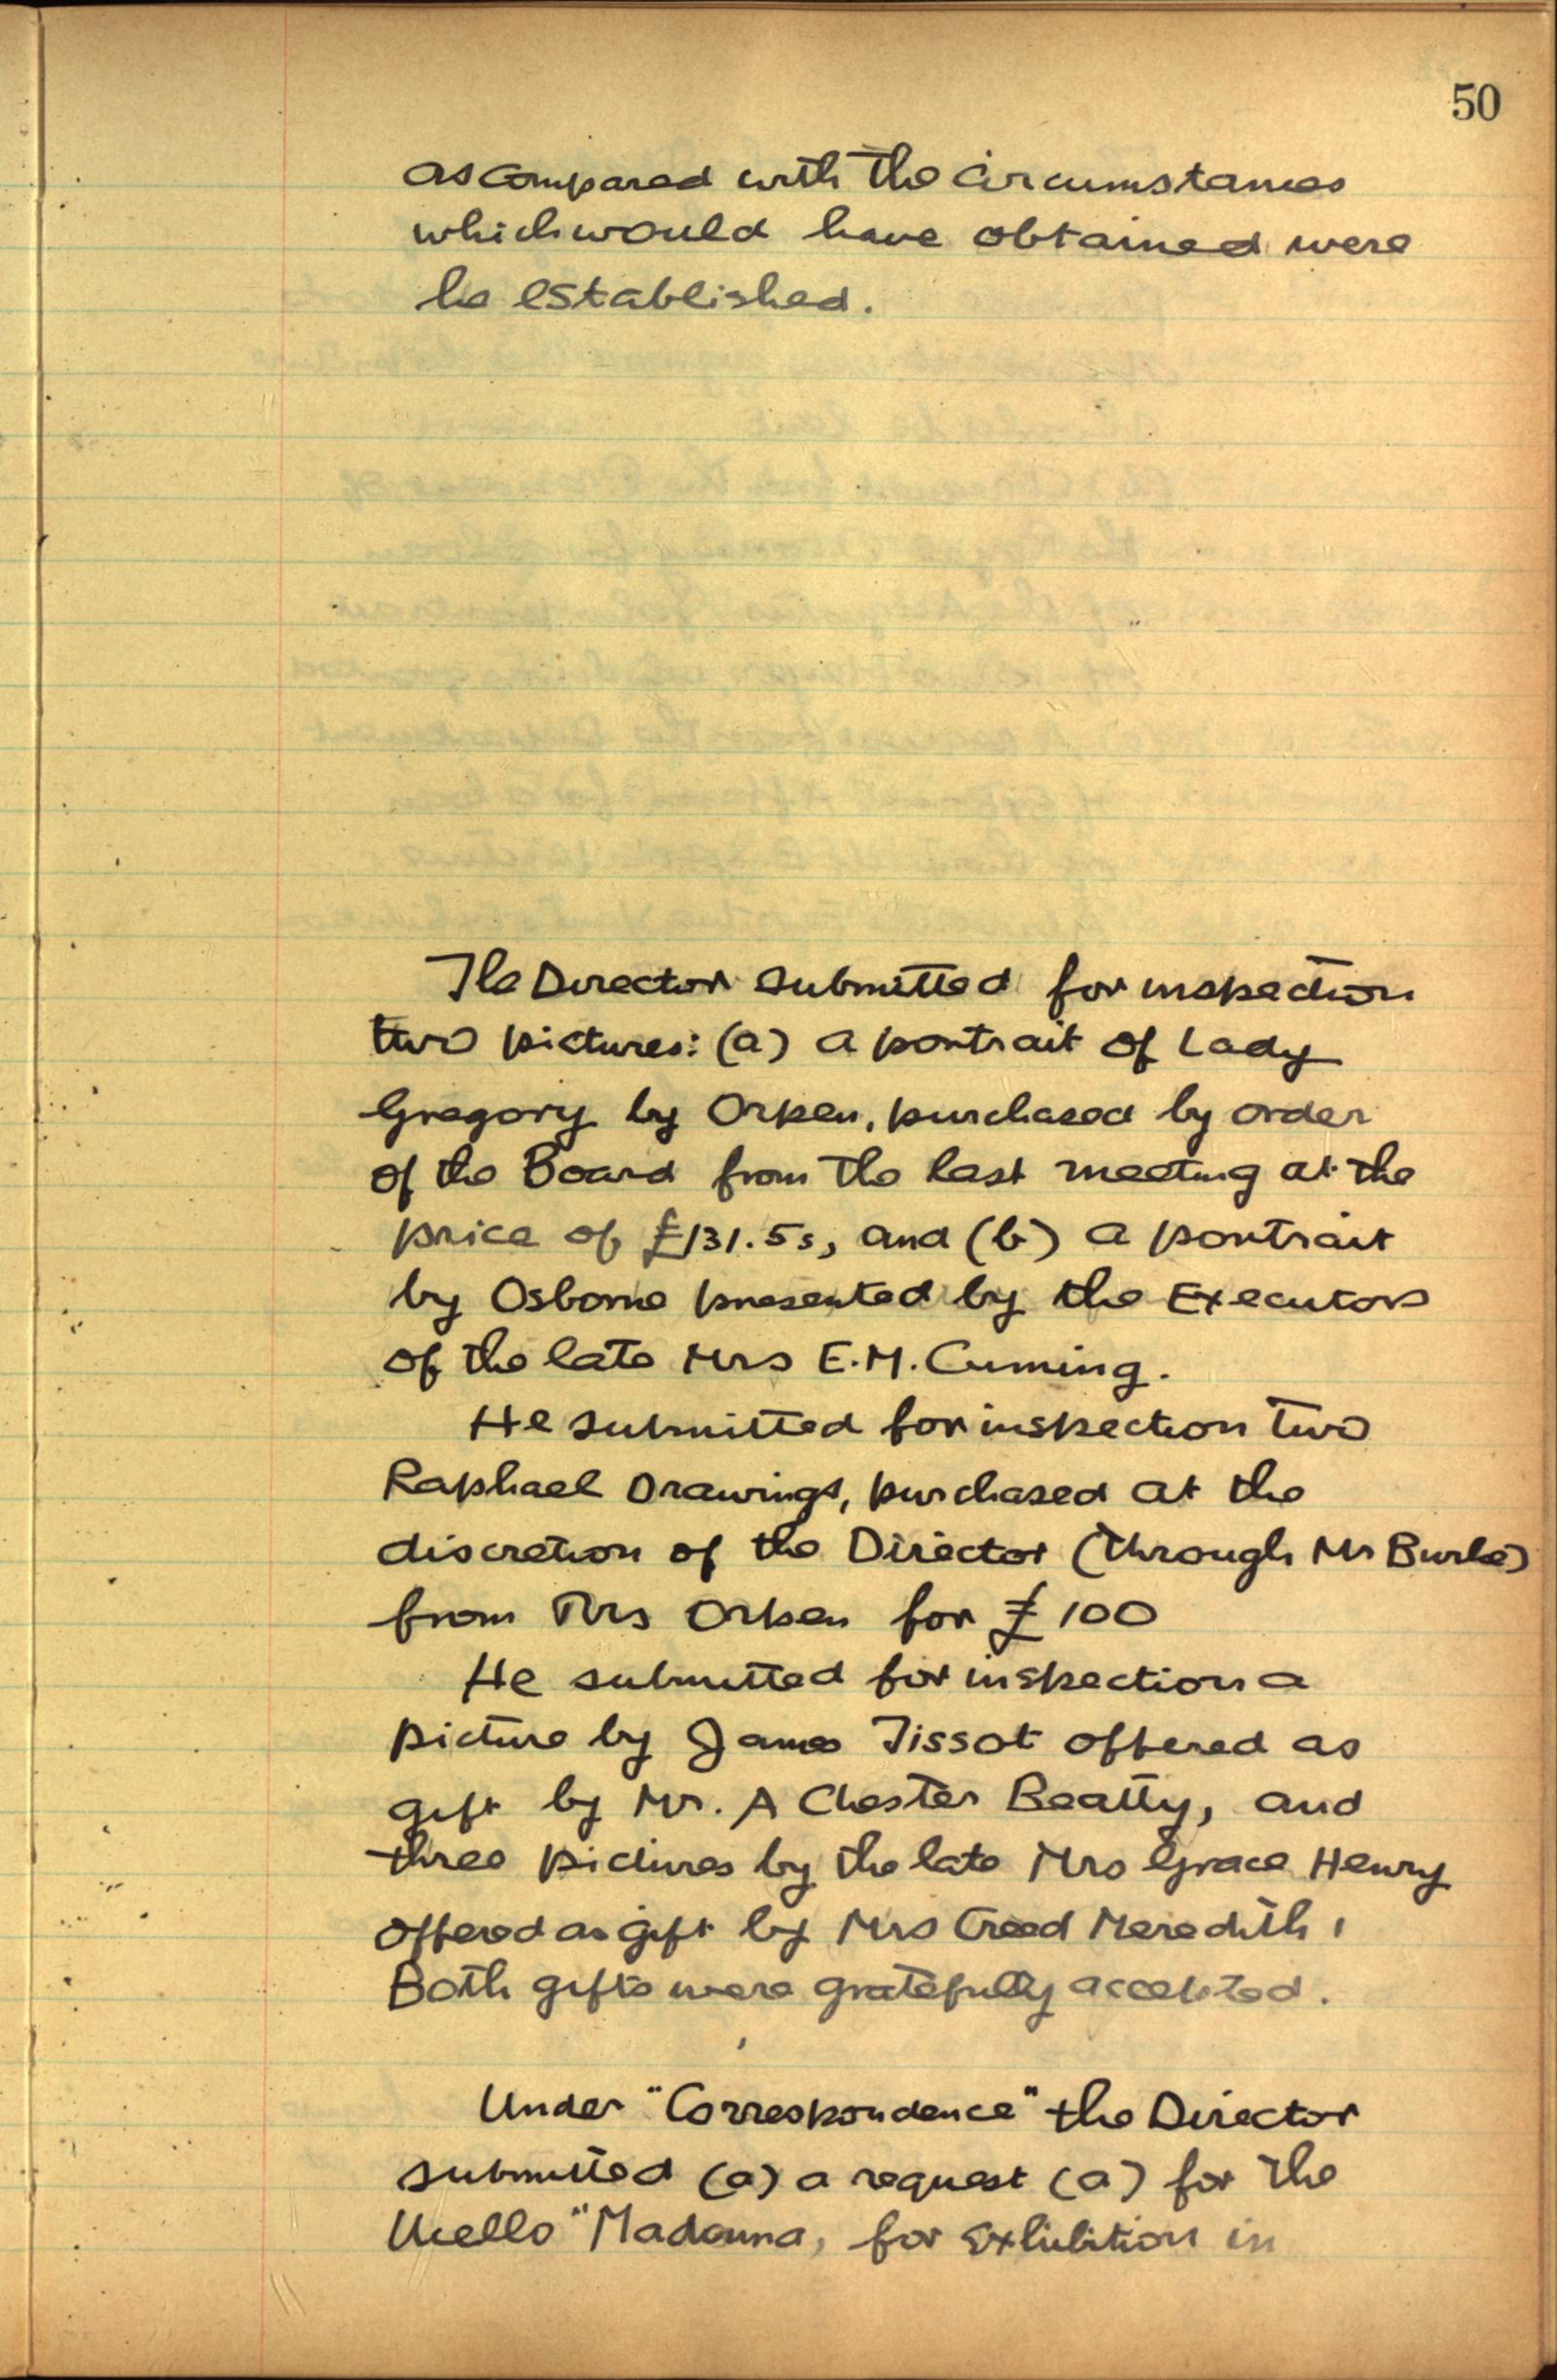 50
as compared with the circumstances
which would have obtained were
he established.
The Director submitted for inspection
two pictures: (a) a portrait of Lady
Gregory by Orpen, purchased by order
of the Board from the last meeting at the
price of £131.5s, and (b) a portrait
by Osborne presented by the Executors
of the late Mrs E.M. Cuming.
He submitted for inspection two
Raphael Drawings, purchased at the
discretion of the Director (through Mr Burke)
from Mrs Orpen for £100
He submitted for inspection a
picture by James Tissot offered as
gift by Mr. A Chester Beatty, and
three pictures by the late Mrs Grace Henry
offered as gift by Mrs Creed Meredith,
Both gifts were gratefully accepted.
Under "Correspondence" the Director
submitted (a) a request (a) for the
Ucello "Madonna, for Exhibition in